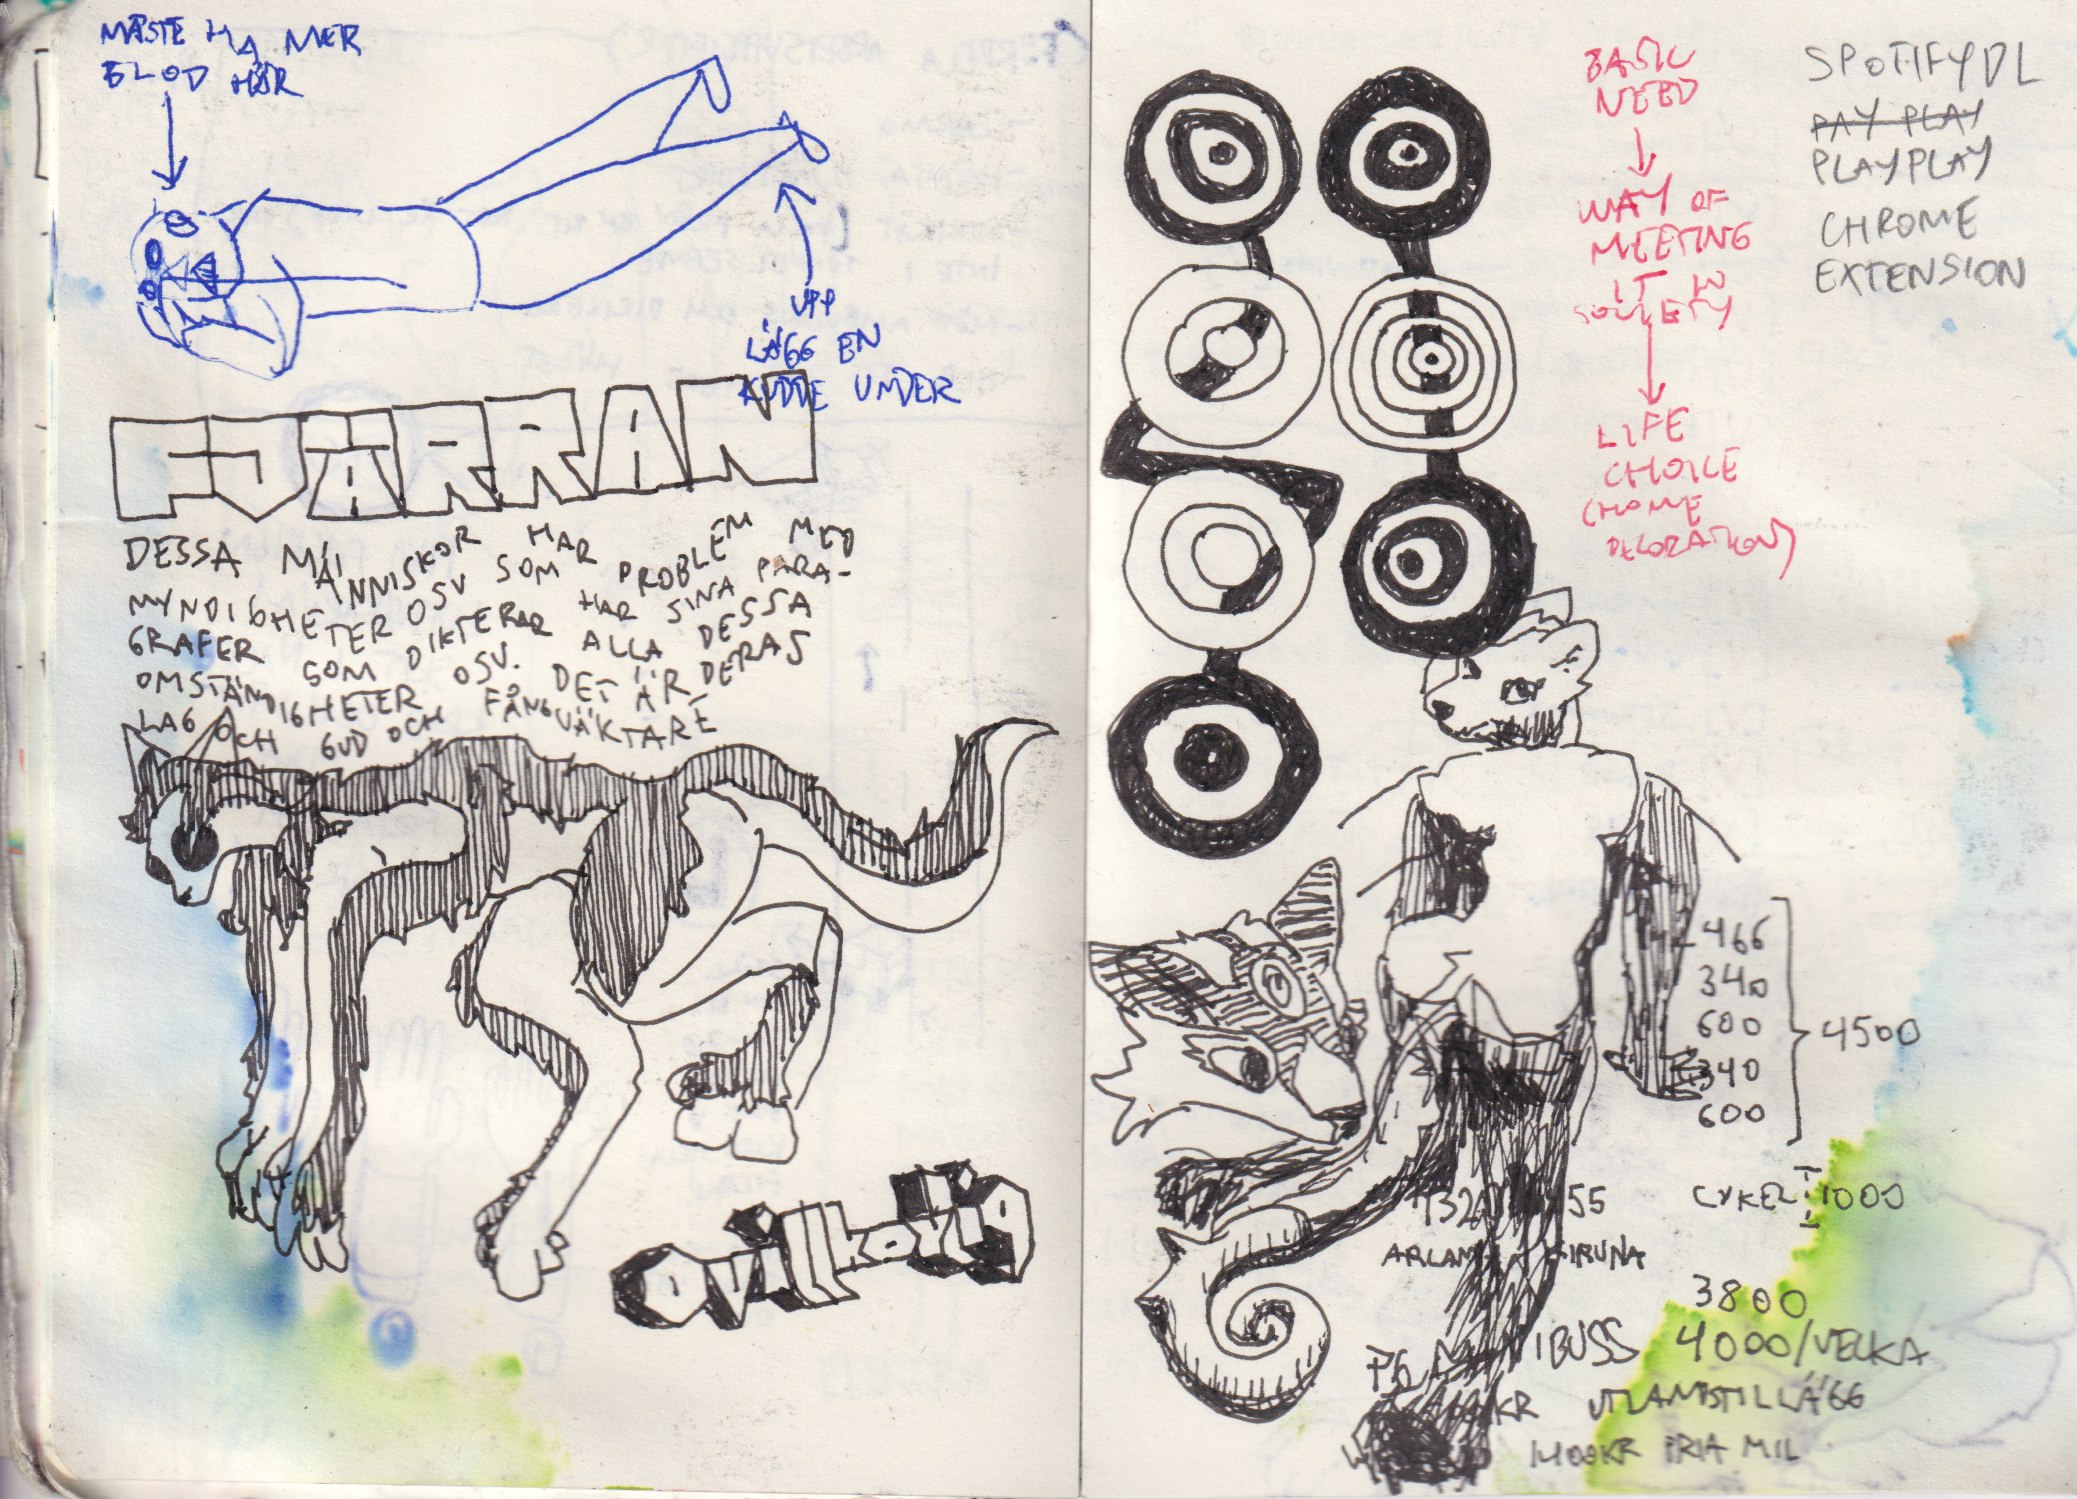 MÅSTE HA MER
BLOD HÄR
UPP
LÄGG EN
KUDDE UNDER
FJÄRRAN
DESSA MÄNNISKOR HAR PROBLEM MED
MYNDIGHETER OSV SOM HAR SINA PARA-
GRAFER SOM DIKTERAR ALLA DESSA
OMSTÄNDIGHETER OSV. DET ÄR DERAS
LAG OCH GUD OCH FÅNGVÄKTARE
BASIC
NEED
WAY OF
MEETING
IT IN
SOCIETY
LIFE
CHOICE
(HOME
DECORATION)
SPOTIFYDL
PAY PLAY
PLAYPLAY
CHROME
EXTENSION
466
340
600
340
600
4500
55
CYKEL 1000
3800
BUSS 4000/VECKA
KR
1400KR FRIA MIL